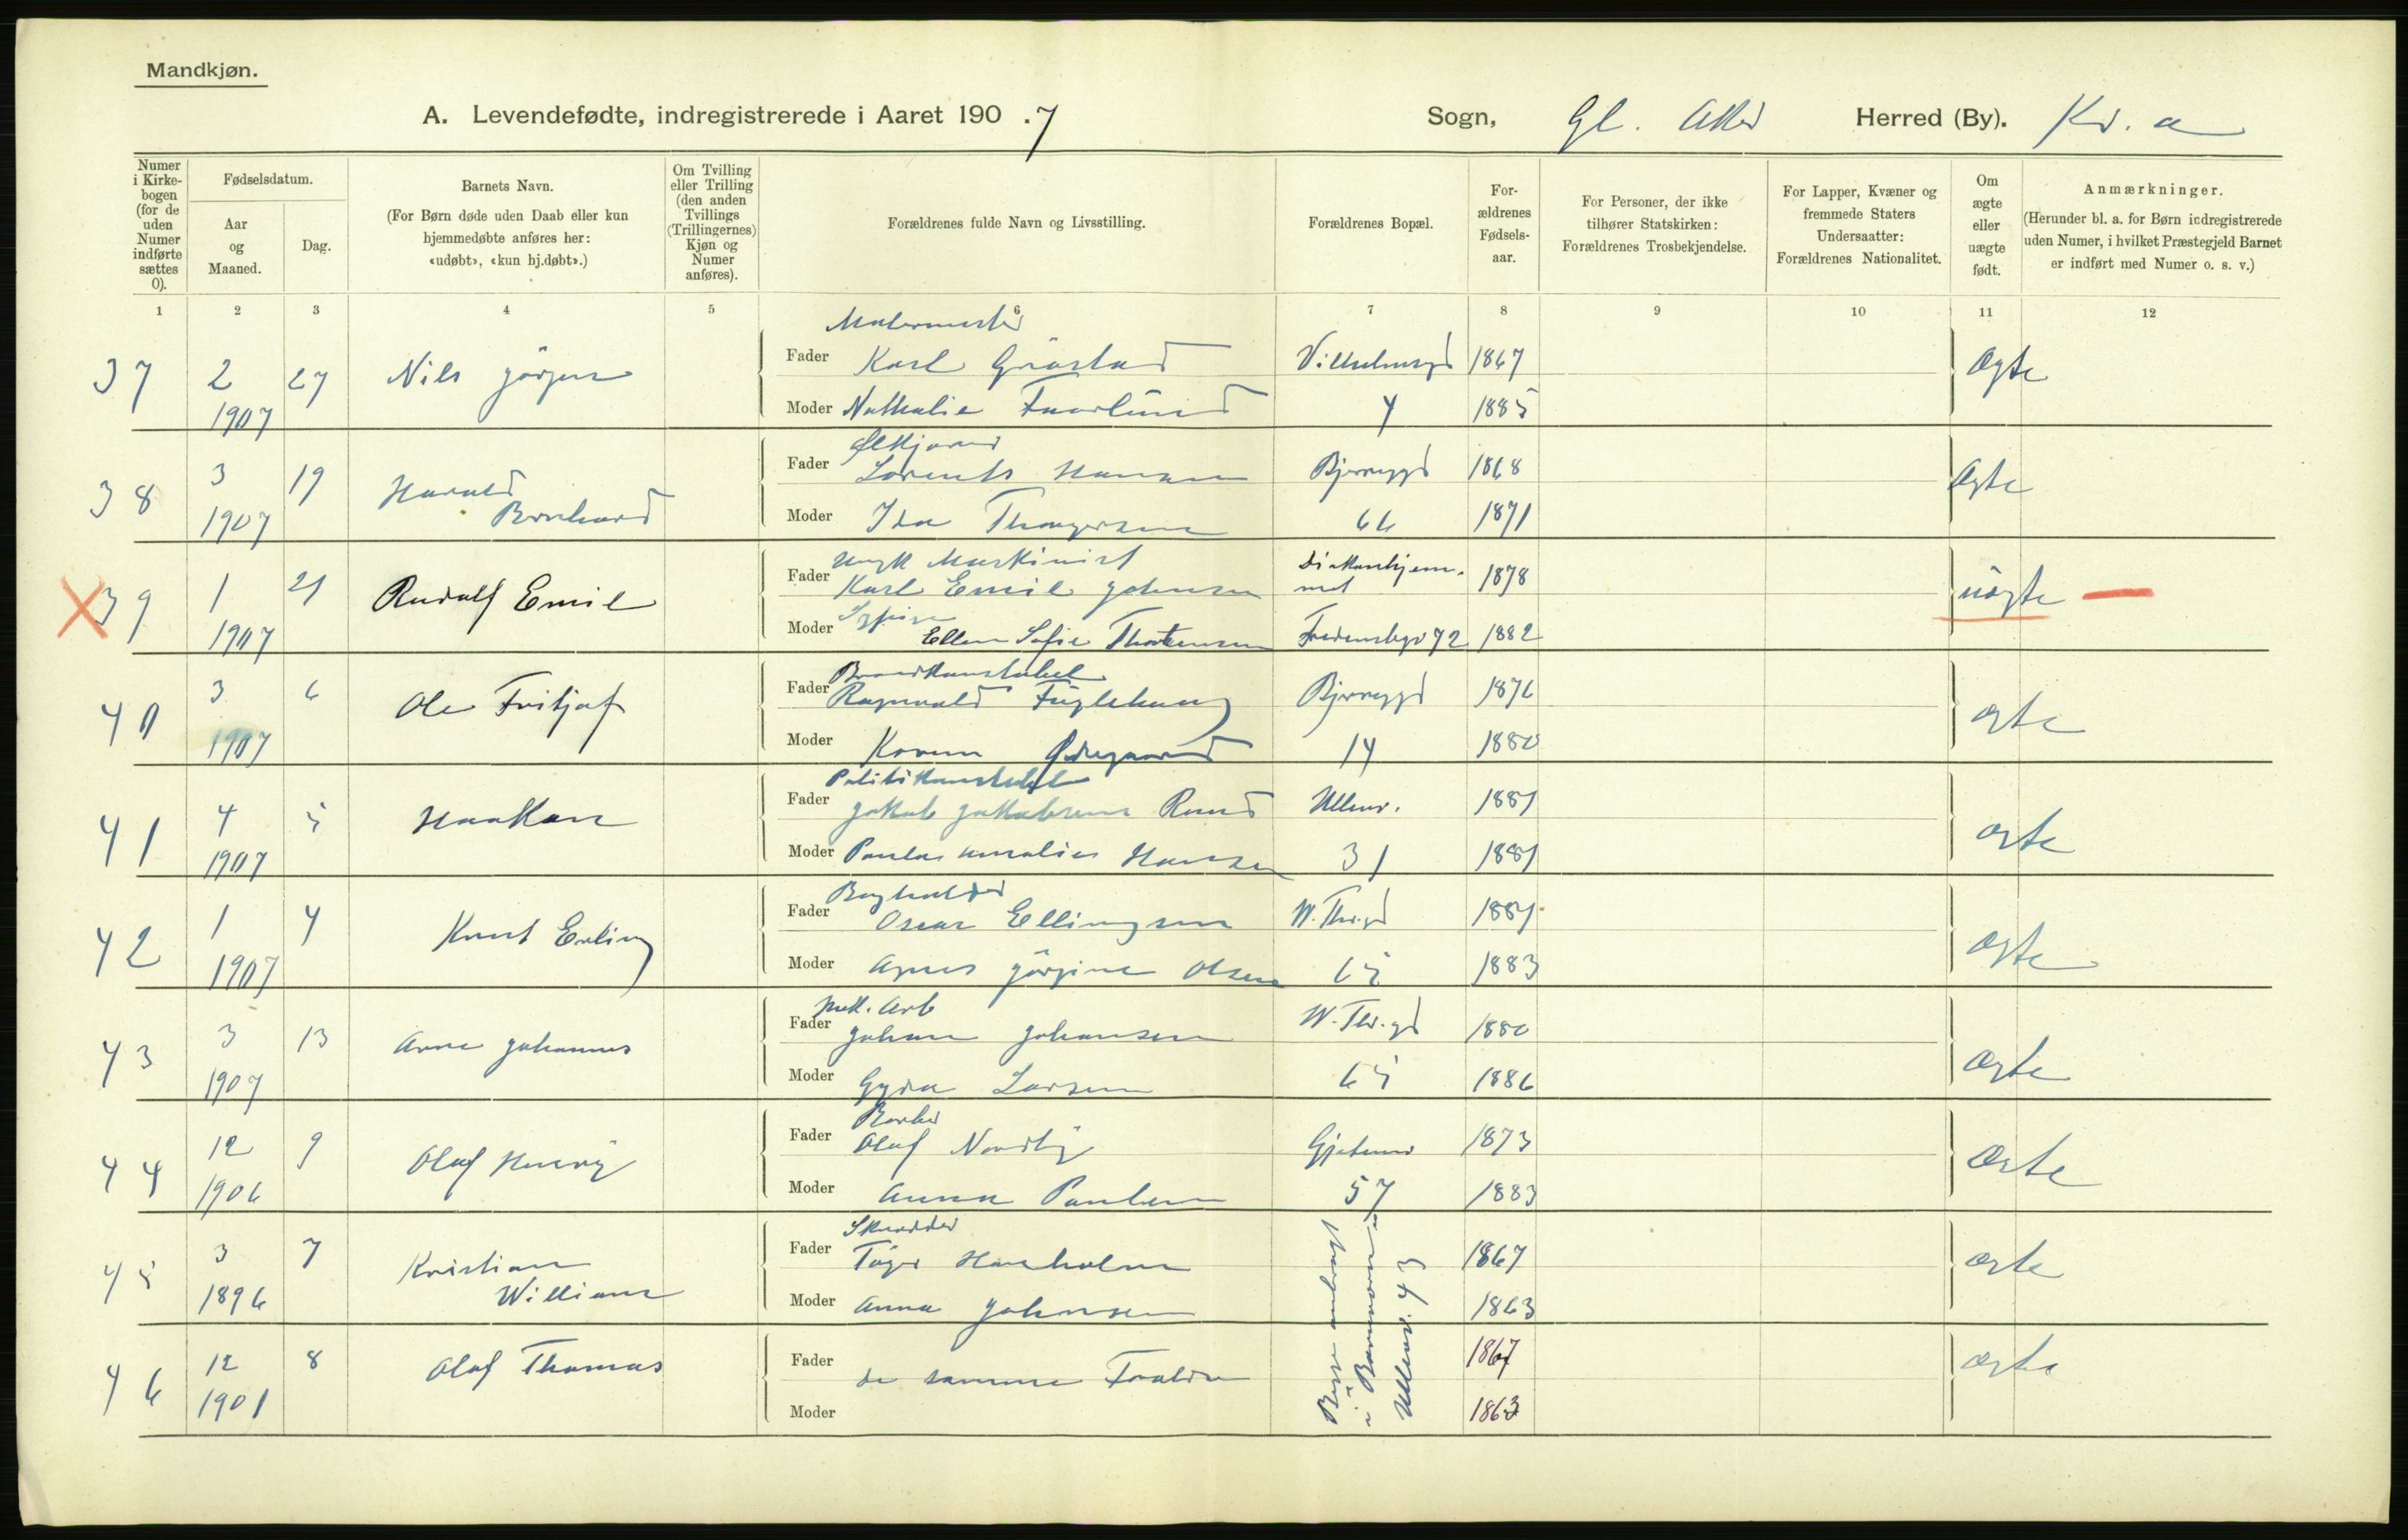 Mandkjøn.
A. Levendefødte, indregistrerede i Aaret 190 .7 Sogn, Gl. Aker Herred (By). Kr. a
Numer i Kirkebogen (for de uden Numer indførte sættes 0).
Fødselsdatum.
Aar og Maaned.
Dag.
Barnets Navn.
(For Børn døde uden Daab eller kun
hjemmedøbte anføres her:
«udøbt», «kun hj.døbt».)
Om Tvilling
eller Trilling
(den anden
Tvillings
(Trillingernes)
Kjøn og
Numer
anføres).
Forældrenes fulde Navn og Livsstilling.
Forældrenes Bopæl.
For-
ældrenes
Fødsels-
aar.
For Personer, der ikke
tilhører Statskirken:
Forældrenes Trosbekjendelse.
For Lapper, Kvæner og
fremmede Staters
Undersaatter:
Forældrenes Nationalitet.
Om
ægte
eller
uægte
født.
Anmærkninger.
(Herunder bl. a. for Børn indregistrerede
uden Numer, i hvilket Præstegjeld Barnet
er indført med Numer o. s. v.)
1 2 3 4 5 6 7 8 9 10 11 12
Malermester
37 2 27 Nils Jörgen Fader Karl Graastad 1867 Ægte
1907 Moder Nathalie Faarlund 7 1885
Ølkjører
38 3 19 Harald Fader Lorents Hansen Bjerregd 1868 Ægte
1907 Bernhard Moder Ida Thoresen 66 1871
Ungk Maskinist Diakonhjem-
39 1 21 Rudolf Emil Fader Karl Emil Johnsen met 1878 uægte —
1907 Moder Ellen Sofie Thorstensen Fredensbgv 72 1882
Brandkonstabel
40 3 6 Ole Fritjof Fader Ragnvald Fuglehaug Bjerregd 1876 ægte
1907 Moder Karen Ødegaard 14 1880
Politikonstabel
41 4 5 Haakon Fader Jakob Jakobsen Rund Ullev. 1881 ægte
1907 Moder Paula Amalie Hansen 31 1881
Boghalder
42 1 4 Knut Erling Fader Oscar Ellingsen W. Thr.gd 1881 ægte
1907 Moder Agnes Jörgine Olsen 65 1883
Mek. Arb
43 3 13 Arne Johannes Fader Johan Johansen W. Thr.gd 1880 ægte
1907 Moder Gyda Larsen 65 1886
Barber
44 12 9 Olaf Henry Fader Olaf Nordby Gjetemv 1873 ægte
1906 Moder Anna Paulsen 57 1883
Skrædder
45 3 7 Kristian Fader Töger Hareholm 1867 ægte
1896 William Moder Anna Johnsen 1863
46 12 8 Olaf Thomas Fader de samme Foraldre 1867 ægte
1901 Moder 1863
i Ullev. 43